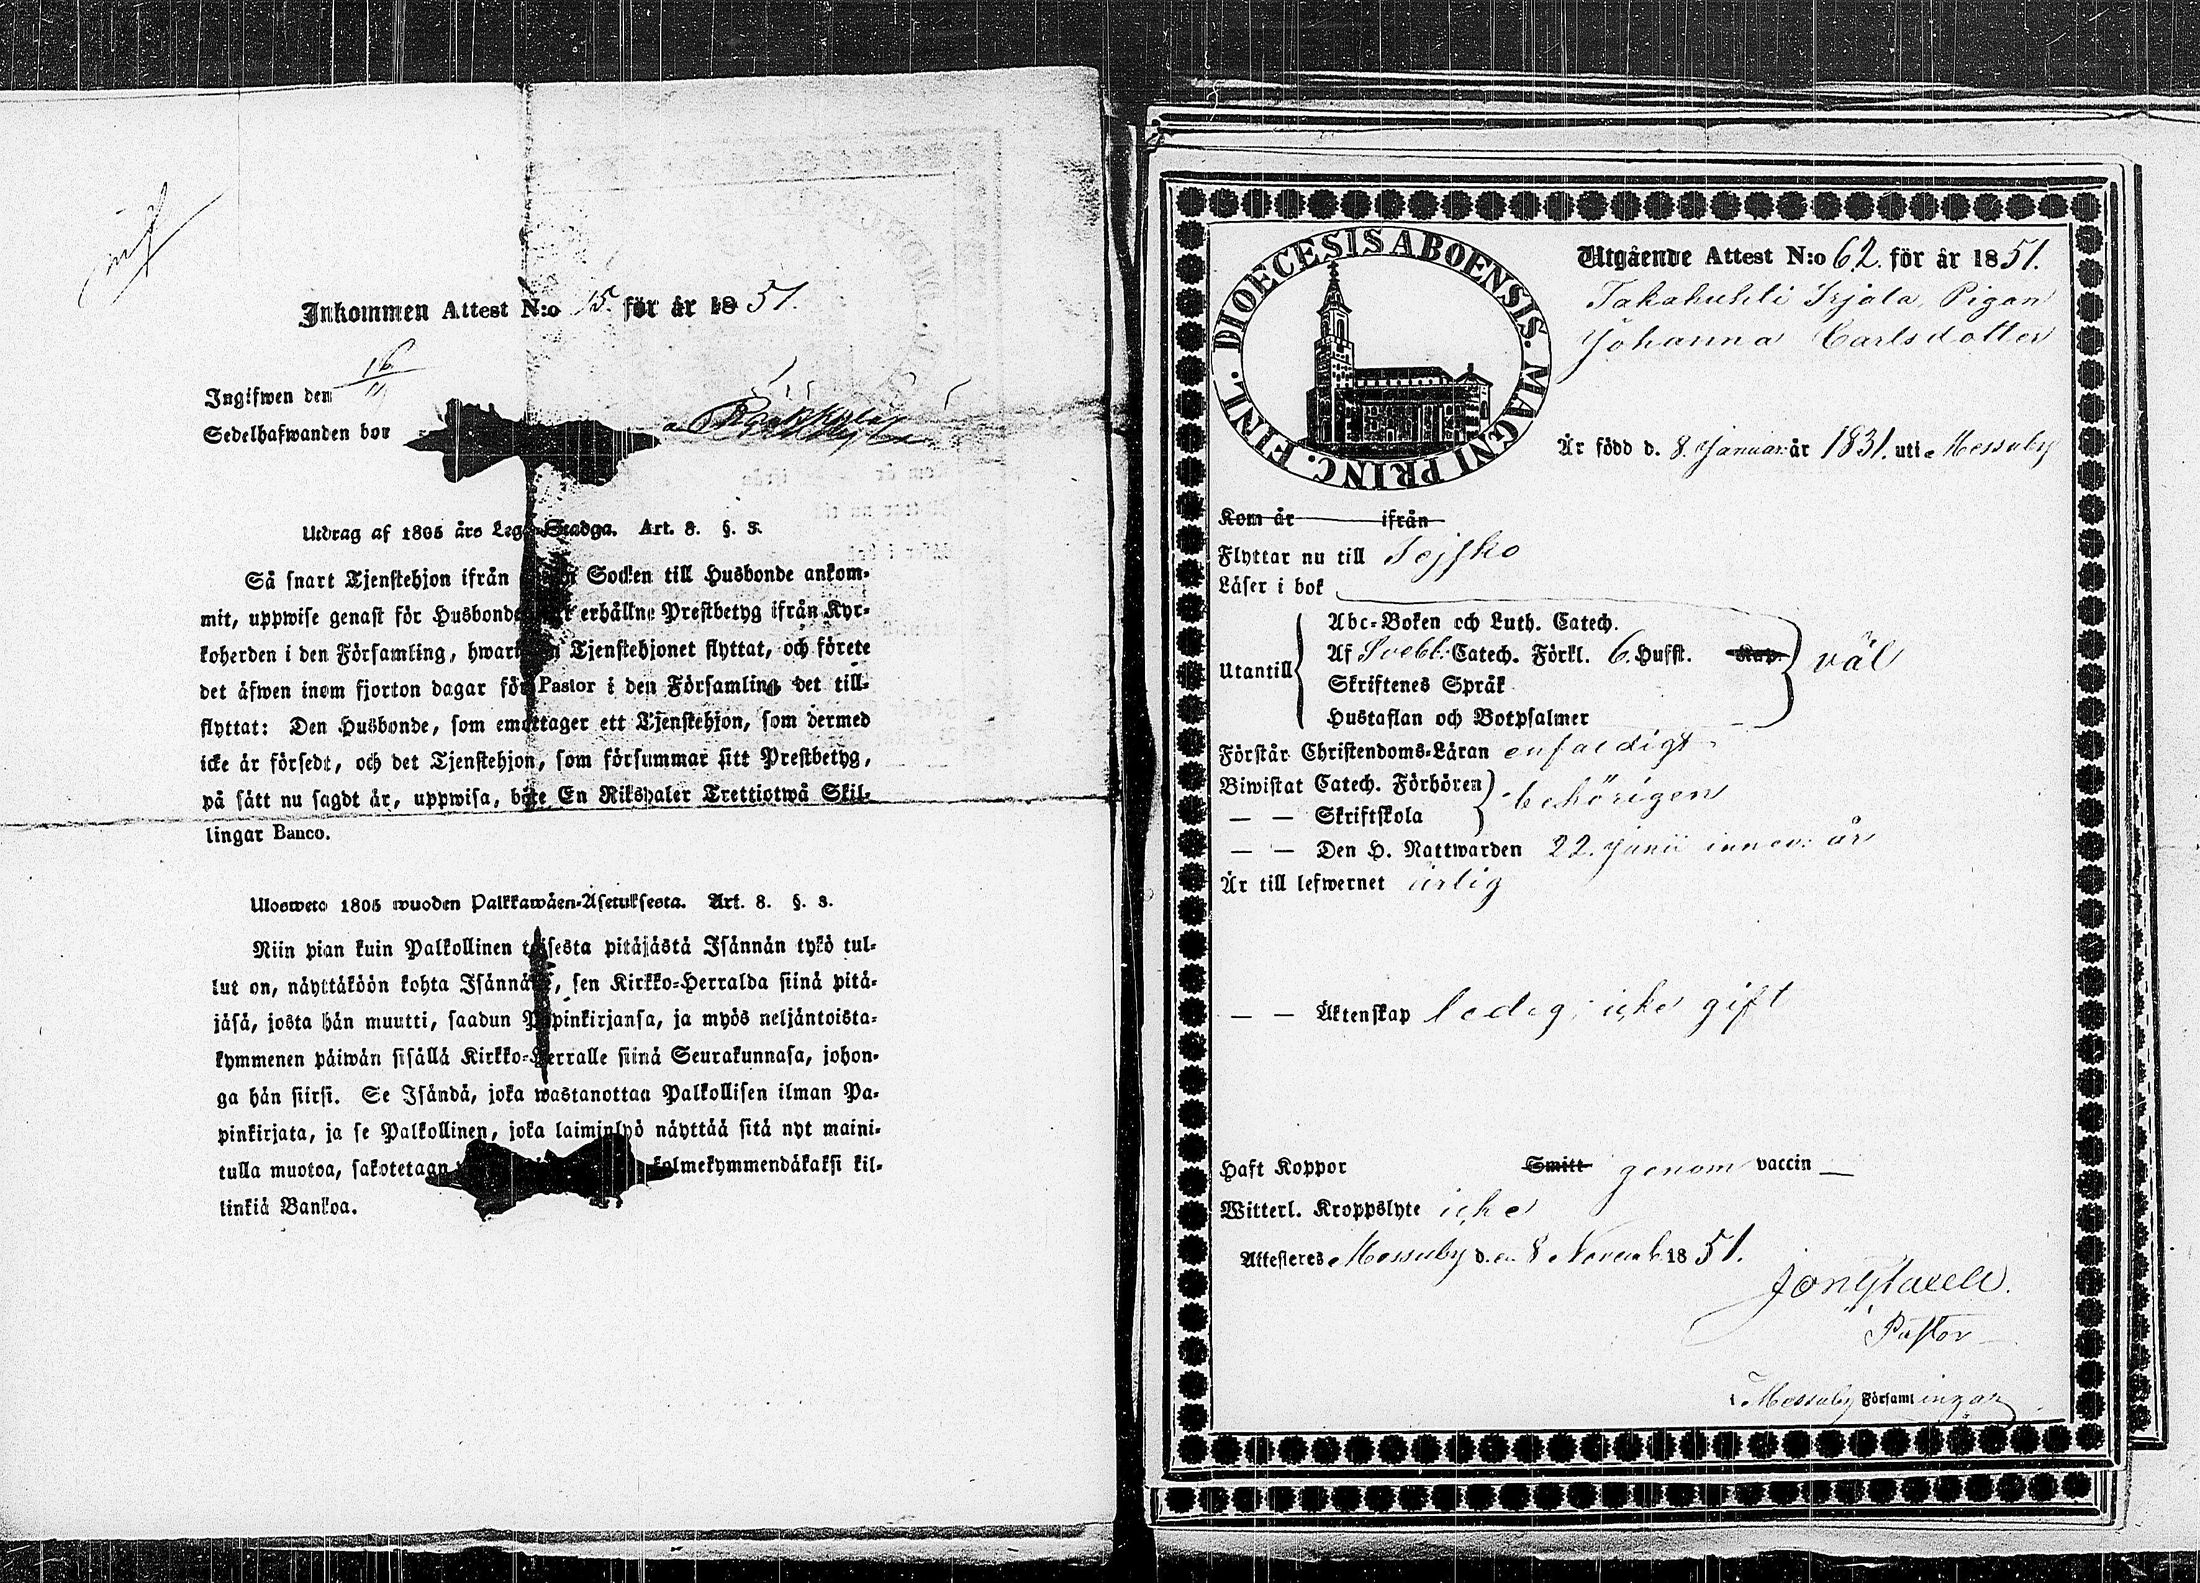 Inkommen Attest N:o 15. för år 1851.
Ingifwen den 16/11
Sedelhafwanden bor
Utdrag af 1805 års Lego-Stadga. Art. 8. §. 3.
Så snart Tjenstehjon ifrån Socken till Husbonde ankom-
mit, uppwise genast för Husbonden erhållne Prestbetyg ifrån Kyr-
koherden i den Församling, hwarifrån Tjenstehjonet flyttat, och förete
det äfwen inom fjorton dagar för Pastor i den Församling det till-
flyttat: Den Husbonde, som emottager ett Tjenstehjon, som dermed
icke är försedt, och det Tjenstehjon, som försummar sitt Prestbetyg,
på sätt nu sagdt är, uppwisa, böte En Riksdaler Trettiotwå Skil-
lingar Banco.
Ulosweto 1805 wuoden Palkkawäen-Asetuksesta. Art. 8. §. 3.
Niin pian kuin Palkollinen toisesta pitäjästä Isännän tykö tul-
lut on, näyttäköön kohta Isännälle, sen Kirkko-Herralda siinä pitä-
jäsä, josta hän muutti, saadun Papinkirjansa, ja myös neljäntoista-
kymmenen päiwän sisällä Kirkko-Herralle siinä Seurakunnasa, johon-
ga hän siirsi. Se Isändä, joka wastanottaa Palkollisen ilman Pa-
pinkirjata, ja se Palkollinen, joka laiminlyö näyttää sitä nyt maini-
tulla muotoa, sakotetaan kolmekymmendäkaksi kil-
linkiä Bankoa.
Utgående Attest N:o 62. för år 1851.
Takahuhti Irjala, Pigan
Johanna Carlsdotter
DIOECESIS ABOENSIS. MAGNI PRINC. FINL.
Är född d. 8. Januari år 1831. uti Messuby
Kom år ifrån
Flyttar nu till
Läser i bok
Abc-Boken och Luth. Catech.
Utantill Af Svebl. Catech. Förkl. 6. Hufst. Kap. väl
Skriftenes Språk
Hustaflan och Botpsalmer
Förstår Christendoms-Läran enfaldigt
Biwistat Catech. Förhören behörigen
— — Skriftskola
— — Den H. Nattwarden 22. Junii innev. år
Är till lefwernet ärlig
— — Äktenskap ledig, icke gift
Haft Koppor Smitt genom vaccin —
Witterl. Kroppslyte icke
Attesteres Messuby d. en 8 Novemb. 1851.
Pastor
i Messuby Församlingar